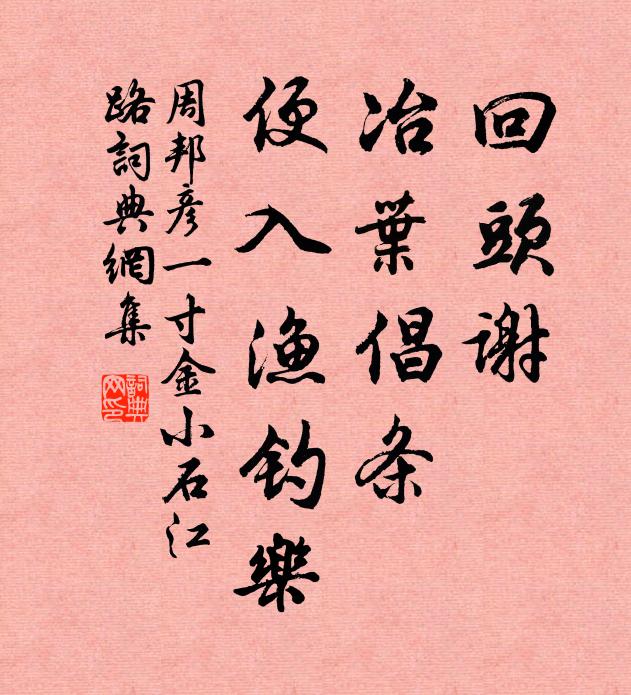 回頭謝
冶葉倡条
便入漁釣樂
周邦彦一寸金小石江
路詞典網集
詞典
网印